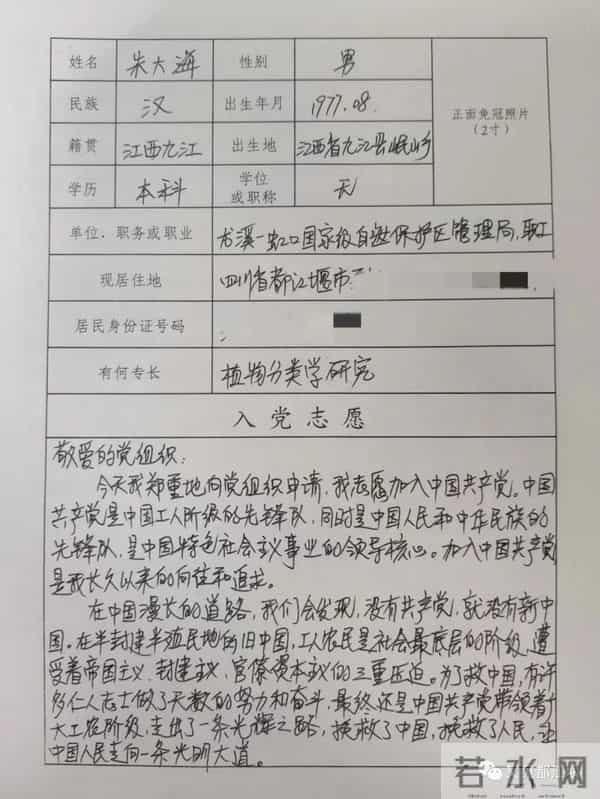 姓名 朱大海 性别 男
民族 汉 出生年月 1977.08.
正面免冠照片
(2寸)
籍贯 江西九江 出生地 江西省九江县岷山乡
学历 本科 学位或职称 无
单位、职务或职业 龙溪-虹口国家级自然保护区管理局、职工
现居住地 四川省都江堰市
居民身份证号码
有何专长 植物分类学研究
入党志愿
敬爱的党组织:
今天我郑重地向党组织申请,我志愿加入中国共产党。中国
共产党是中国工人阶级的先锋队,同时是中国人民和中华民族的
先锋队,是中国特色社会主义事业的领导核心。加入中国共产党
是我长久以来的向往和追求。
在中国漫长的道路,我们会发现,没有共产党,就没有新中
国。在半封建半殖民地的旧中国,工人农民是社会最底层的阶级,遭
受着帝国主义、封建主义、官僚资本主义的三重压迫。为了救中国,有许
多仁人志士做了无数的努力和奋斗,最终还是中国共产党带领着广
大工农阶级,走出了一条光辉之路,挽救了中国,挽救了人民,让
中国人民走向一条光明大道。
若水网